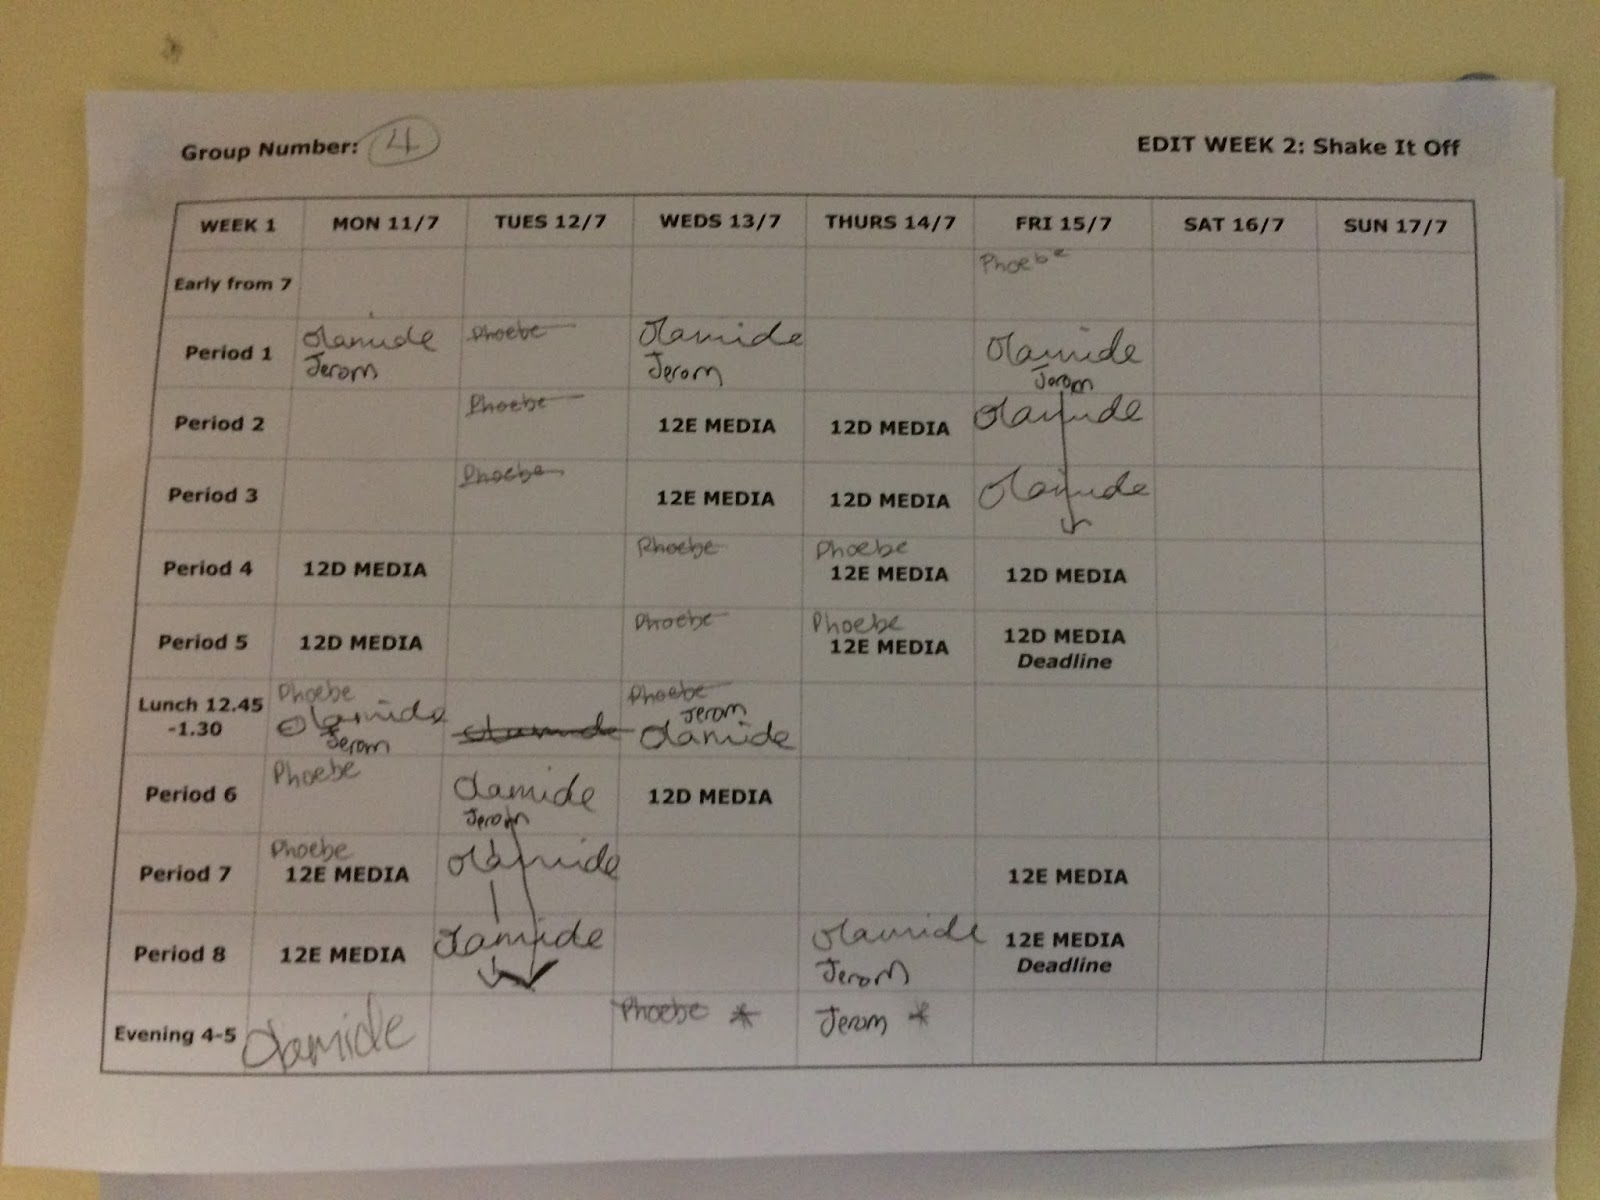 Group Number: 4 EDIT WEEK 2: Shake It Off
WEEK 1 MON 11/7 TUES 12/7 WEDS 13/7 THURS 14/7 FRI 15/7 SAT 16/7 SUN 17/7
Early from 7 Phoebe
Period 1 Olamide Phoebe Olamide Olamide
Jerom Jerom Jerom
Period 2 Phoebe 12E MEDIA 12D MEDIA Olamide
Period 3 Phoebe 12E MEDIA 12D MEDIA Olamide
Phoebe Phoebe
Period 4 12D MEDIA 12E MEDIA 12D MEDIA
Phoebe Phoebe
Period 5 12D MEDIA 12E MEDIA 12D MEDIA
Deadline
Phoebe Phoebe
Lunch 12.45 Olamide Jerom
-1.30 Jerom Olamide Olamide
Phoebe
Period 6 Olamide 12D MEDIA
Jerom
Phoebe
Period 7 12E MEDIA Olamide 12E MEDIA
Period 8 12E MEDIA Olamide Olamide 12E MEDIA
Jerom Deadline
Evening 4-5 Olamide Phoebe * Jerom *